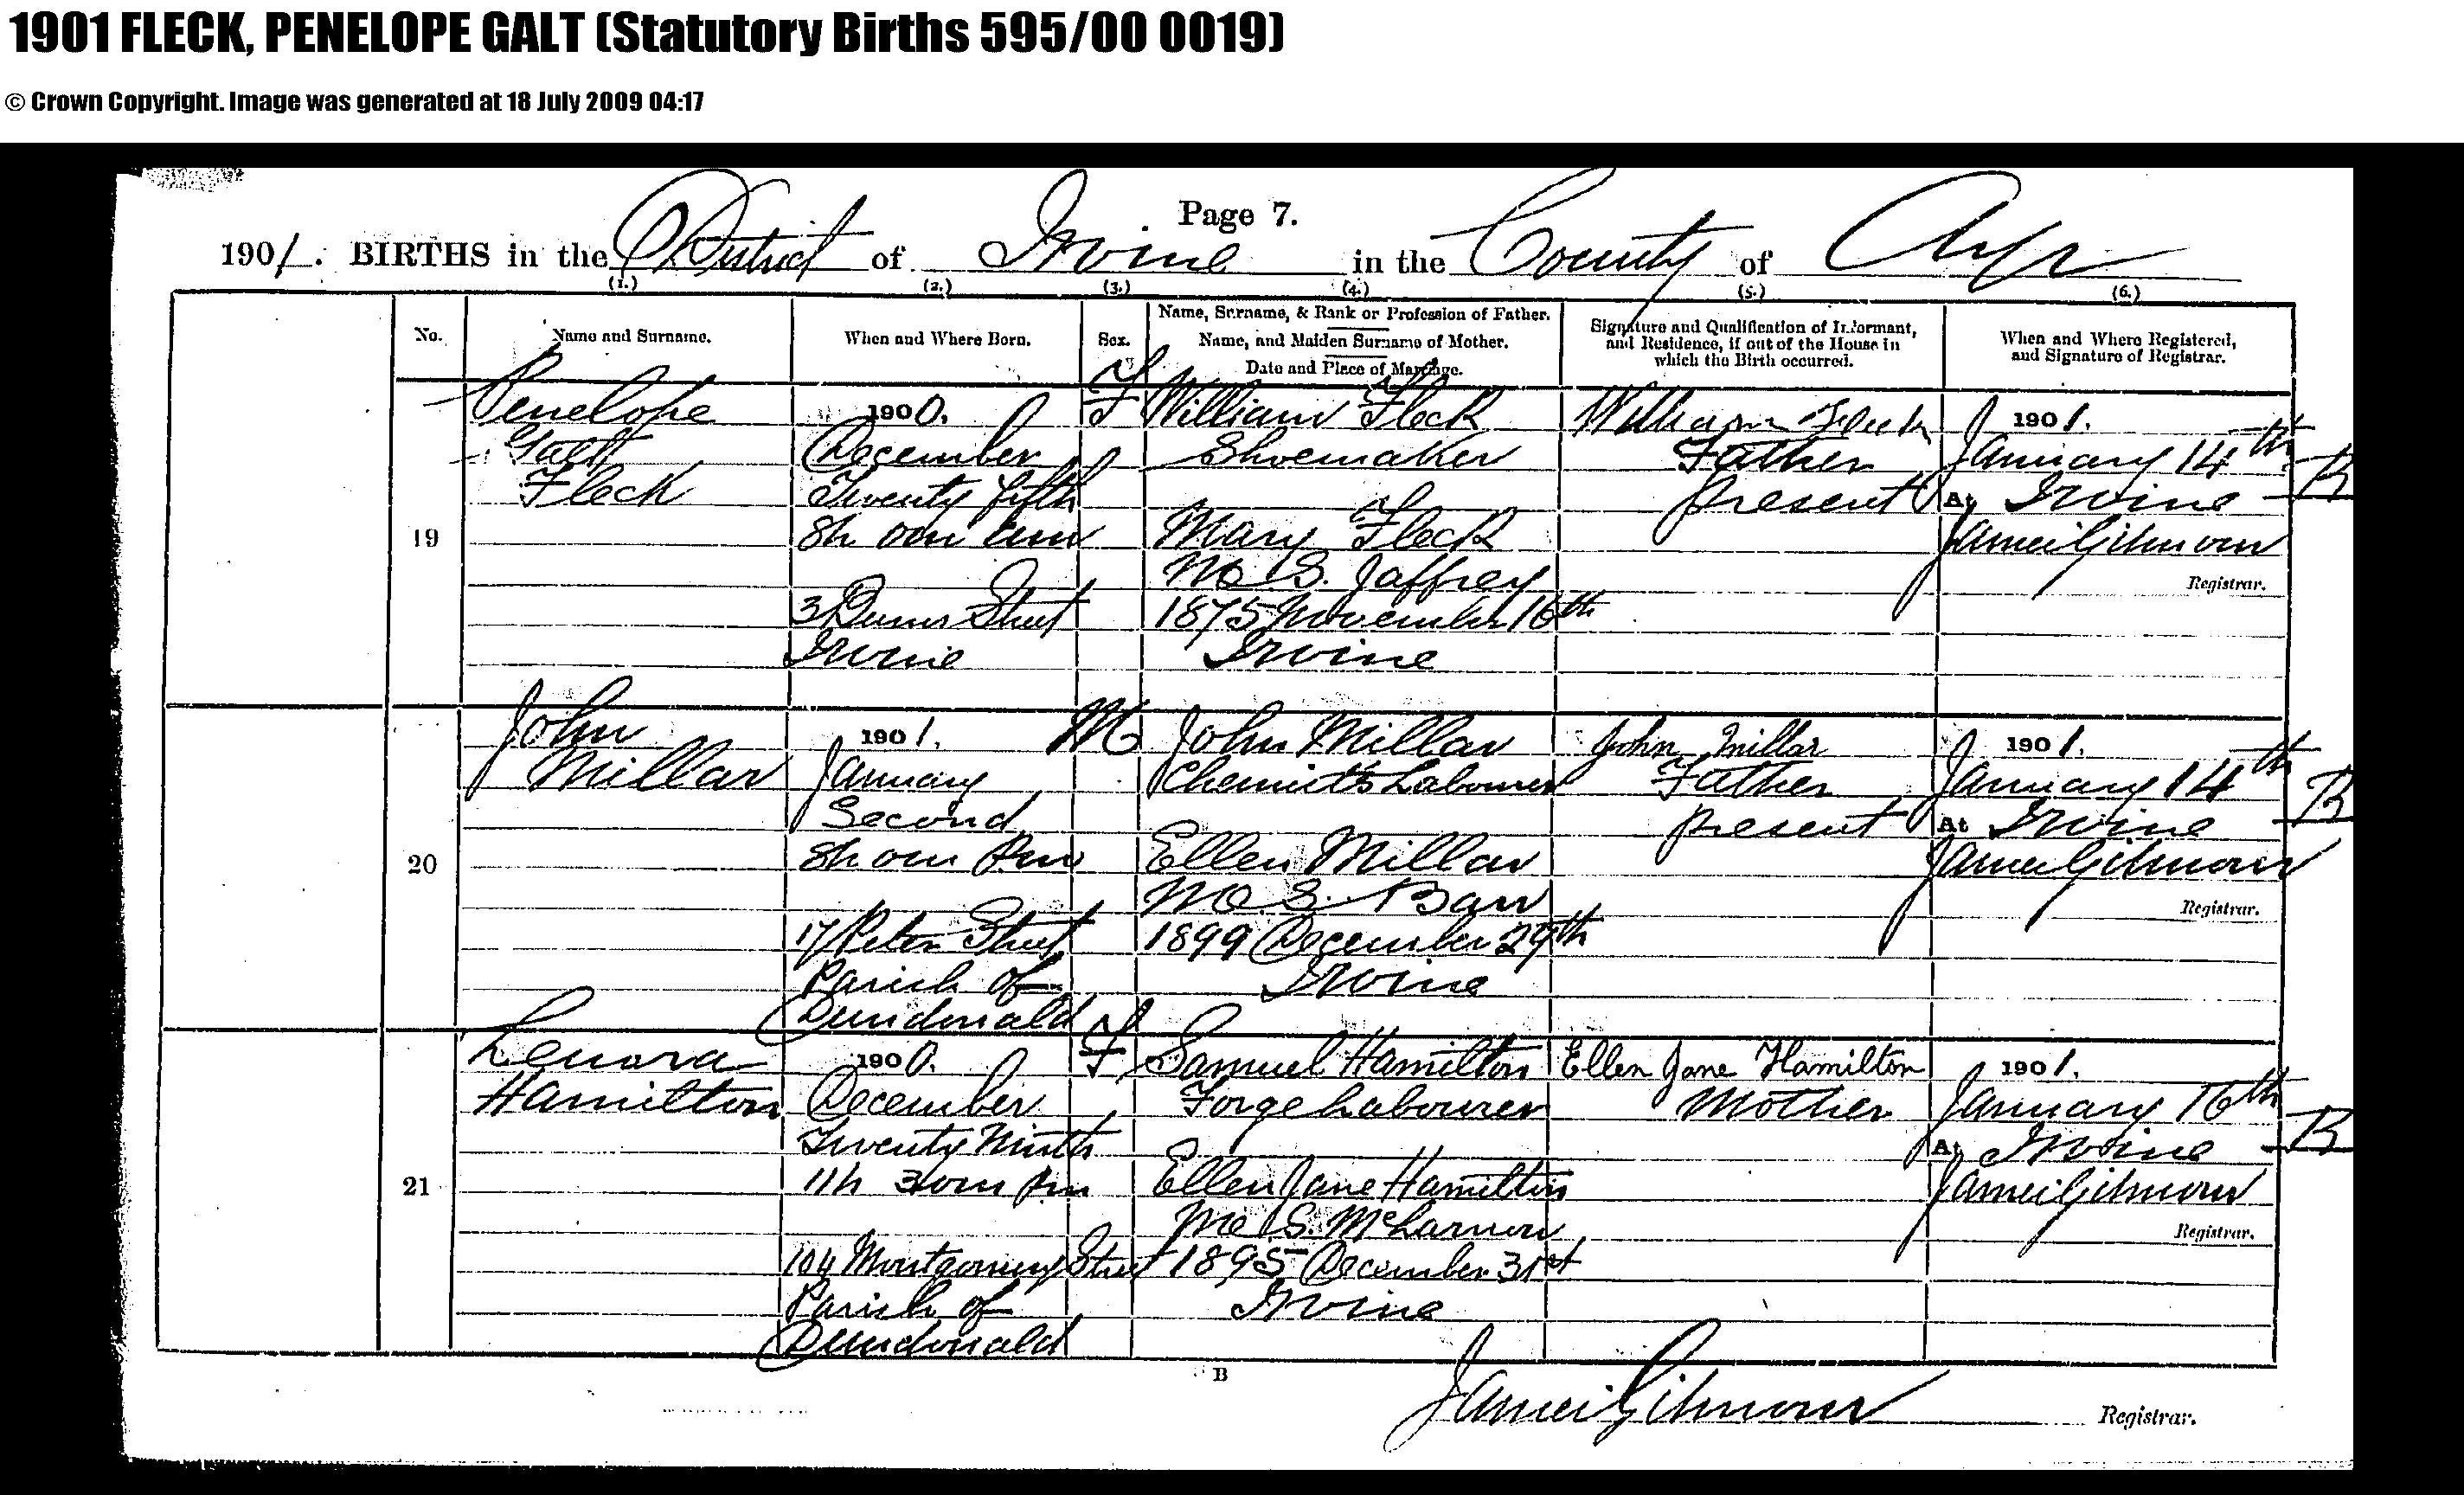 1901 FLECK, PENELOPE GALT (Statutory Births 595/00 0019)
© Crown Copyright. Image was generated at 18 July 2009 04:17
Page 7.
1901. BIRTHS in the District of Irvine in the County of Ayr
(1.) (2.) (3.) (4.) (5.) (6.)
No.
Name and Surname.
When and Where Born.
Sex.
Name, Surname, & Rank or Profession of Father.
Name, and Maiden Surname of Mother.
Date and Place of Marriage.
Signature and Qualification of Informant,
and Residence, if out of the House in
which the Birth occurred.
When and Where Registered,
and Signature of Registrar.
19
Penelope
Galt
Fleck
1900.
December
Twenty fifth
8h 0m am
3 Burns Street
Irvine
F
William Fleck
Shoemaker
Mary Fleck
M.S. Jaffrey
1875 November 16th
Irvine
William Fleck
Father
present
1901.
January 14th
At Irvine
James Gilmour
Registrar.
20
John
Millar
1901.
January
Second
8h 0m Pm
17 Peter Street
Parish of
Dundonald
M
John Millar
Chemist's Labourer
Ellen Millar
M.S. Barr
1899 December 29th
Irvine
John Millar
Father
present
1901.
January 14th
At Irvine
James Gilmour
Registrar.
21
Lenora
Hamilton
1900.
December
Twenty Ninth
11h 30m Pm
104 Montgomery Street
Parish of
Dundonald
F
Samuel Hamilton
Forge Labourer
Ellen Jane Hamilton
M.S. McLarnon
1895 December 31st
Irvine
Ellen Jane Hamilton
Mother
1901.
January 16th
At Irvine
James Gilmour
Registrar.
B
James Gilmour Registrar.